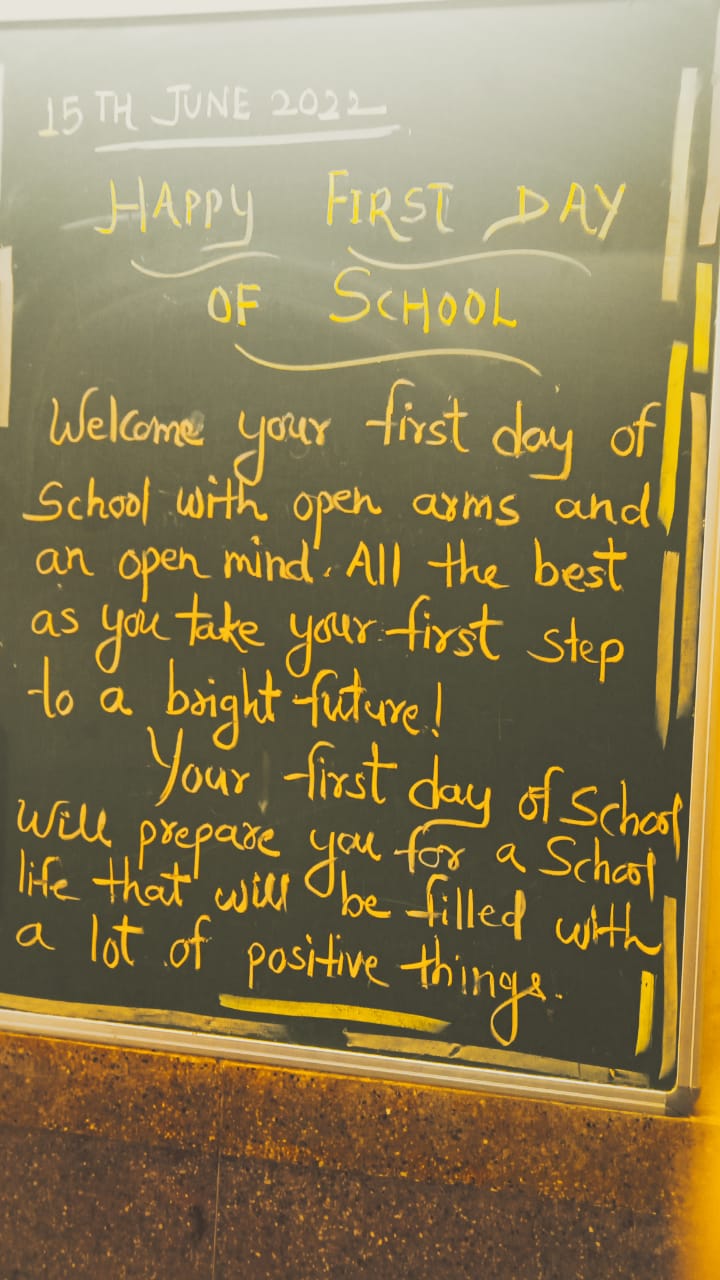 15TH JUNE 2022
HAPPY FIRST DAY
OF SCHOOL
Welcome your first day of
School with open arms and
an open mind. All the best
as you take your first step
to a bright future!
Your first day of School
will prepare you for a School
life that will be filled with
a lot of positive things.